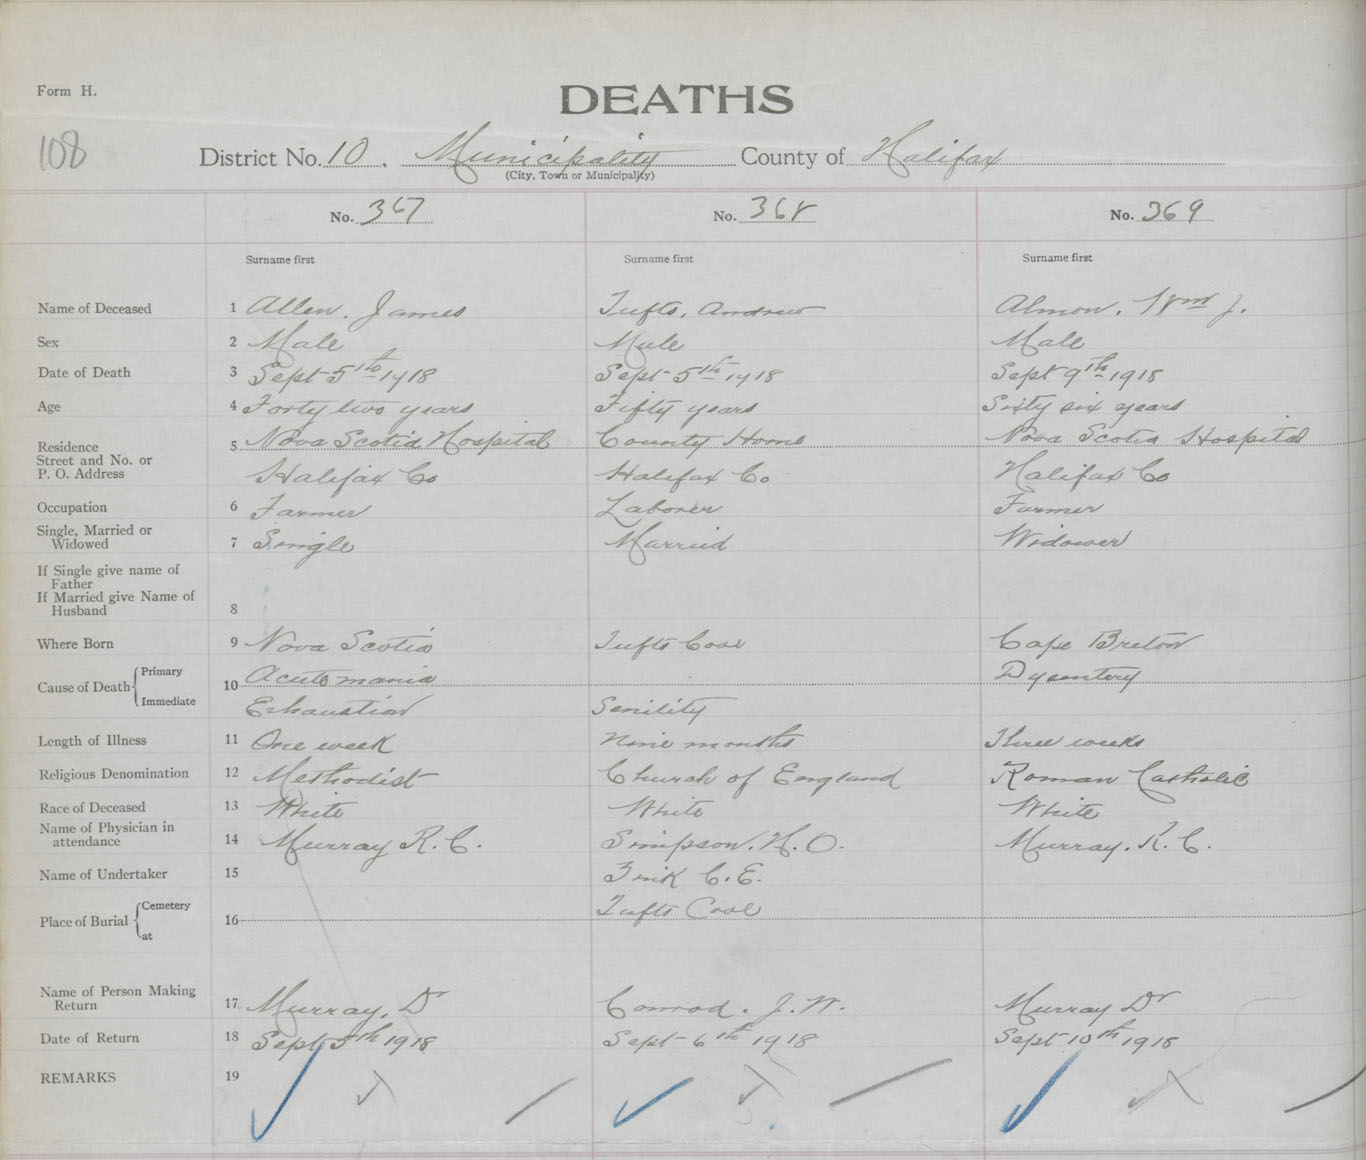 Form H.
DEATHS
108
District No. 10, Municipality County of Halifax
(City, Town or Municipality)
No. 367 No. 368 No. 369
Surname first Surname first Surname first
Name of Deceased 1 Allen. James Tufts, Andrew Almon. Wm J.
Sex 2 Male Male Male
Date of Death 3 Sept 5th 1918 Sept 5th 1918 Sept 9th 1918
Age 4 Forty two years Fifty years Sixty six years
Residence 5 Nova Scotia Hospital County Home Nova Scotia Hospital
Street and No. or
P. O. Address Halifax Co Halifax Co Halifax Co
Occupation 6 Farmer Laborer Farmer
Single, Married or
Widowed 7 Single Married Widower
If Single give name of
Father
If Married give Name of
Husband 8
Where Born 9 Nova Scotia Tufts Cove Cape Breton
Cause of Death Primary 10 Acute mania Dysentery
Immediate Exhaustion Senility
Length of Illness 11 One week Nine months Three weeks
Religious Denomination 12 Methodist Church of England Roman Catholic
Race of Deceased 13 White White White
Name of Physician in
attendance 14 Murray R. C. Simpson. H. O. Murray. R. C.
Name of Undertaker 15 Zink C. E.
Place of Burial Cemetery 16 Tufts Cove
at
Name of Person Making
Return 17 Murray, Dr Conrod. J. W. Murray Dr
Date of Return 18 Sept 5th 1918 Sept 6th 1918 Sept 10th 1918
REMARKS 19